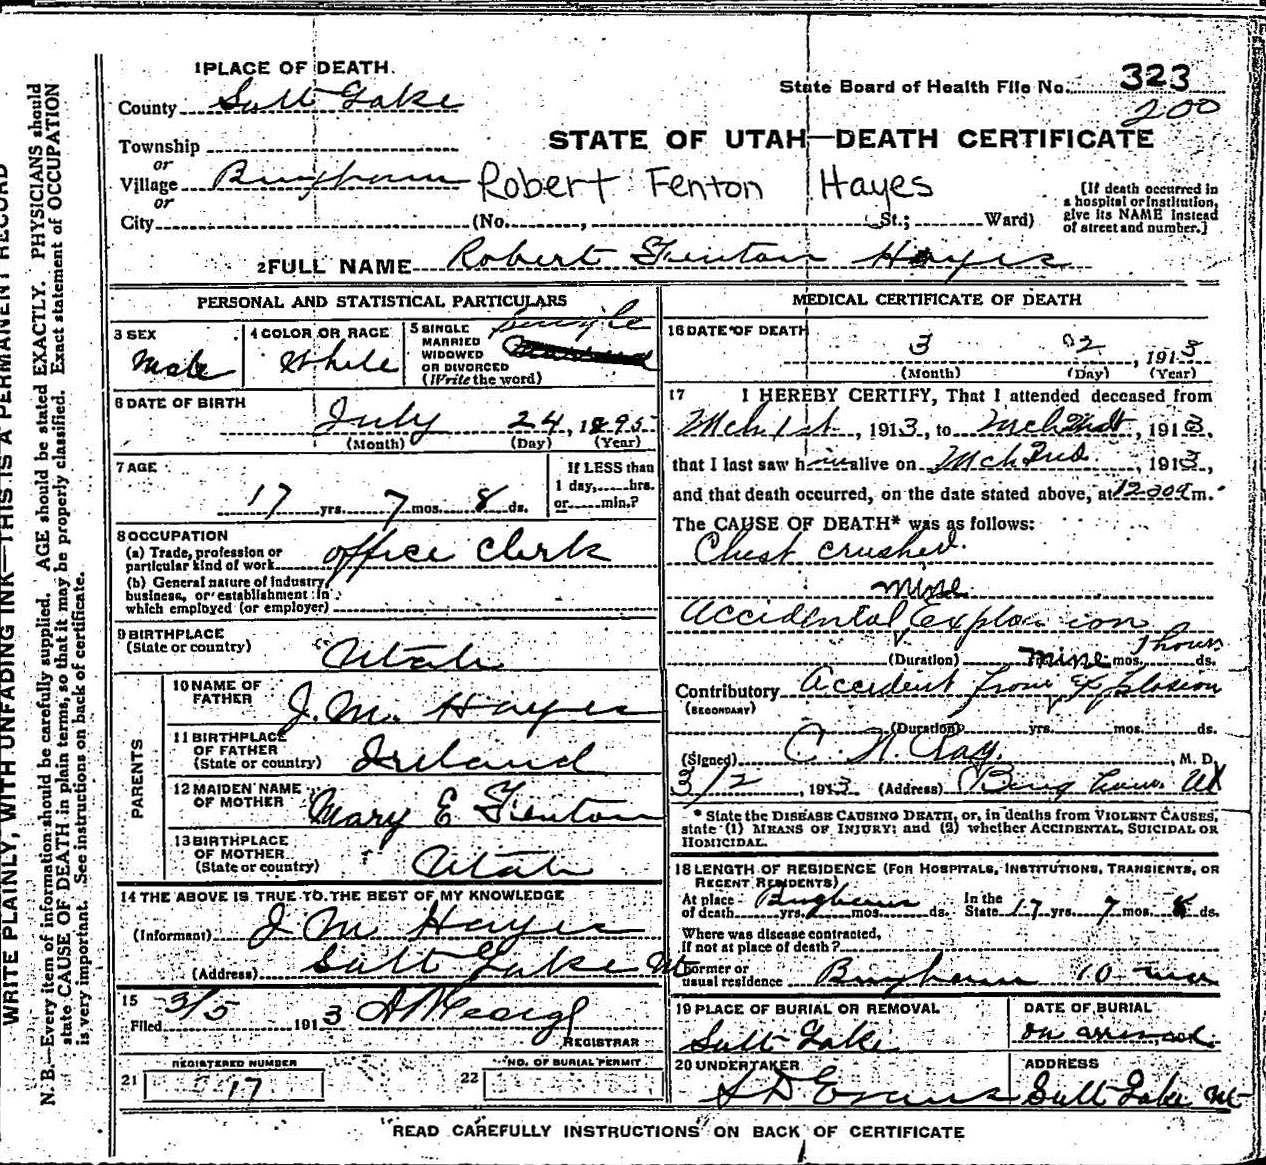 1 PLACE OF DEATH.
County Salt Lake
State Board of Health File No. 323
200
Township
STATE OF UTAH—DEATH CERTIFICATE
or
Village Bingham
Robert Fenton Hayes
or
City (No. , St.; Ward)
[If death occurred in a hospital or institution, give its NAME instead of street and number.]
2 FULL NAME Robert Fenton Hayes
PERSONAL AND STATISTICAL PARTICULARS
3 SEX
Male
4 COLOR OR RACE
White
5 SINGLE
MARRIED
WIDOWED
OR DIVORCED
(Write the word)
Single
6 DATE OF BIRTH
July 24, 1895
(Month) (Day) (Year)
7 AGE
17 yrs. 7 mos. 8 ds.
If LESS than
1 day, hrs.
or min.?
8 OCCUPATION
(a) Trade, profession or
particular kind of work office clerk
(b) General nature of industry,
business, or establishment in
which employed (or employer)
9 BIRTHPLACE
(State or country)
Utah
PARENTS
10 NAME OF
FATHER
J. M. Hayes
11 BIRTHPLACE
OF FATHER
(State or country)
Ireland
12 MAIDEN NAME
OF MOTHER
Mary E Fenton
13 BIRTHPLACE
OF MOTHER
(State or country)
Utah
14 THE ABOVE IS TRUE TO THE BEST OF MY KNOWLEDGE
(Informant) J M Hayes
(Address) Salt Lake Ut
15
Filed 3/5 1913
REGISTRAR
REGISTERED NUMBER
21 17
NO. OF BURIAL PERMIT
22
MEDICAL CERTIFICATE OF DEATH
16 DATE OF DEATH
3 02, 1913
(Month) (Day) (Year)
17 I HEREBY CERTIFY, That I attended deceased from
Mch 1st, 1913, to Mch, 1913,
that I last saw him alive on Mch 2nd, 1913,
and that death occurred, on the date stated above, at 12-30 a m.
The CAUSE OF DEATH* was as follows:
Chest crushed.
mine
Accidental Explosion
1 hours
(Duration) mine mos. ds.
Contributory Accident from Explosion
(SECONDARY)
(Duration) yrs. mos. ds.
(Signed) C. N. Ray, M. D.
3/2, 1913 (Address) Bingham Ut
* State the DISEASE CAUSING DEATH, or, in deaths from VIOLENT CAUSES,
state (1) MEANS OF INJURY; and (2) whether ACCIDENTAL, SUICIDAL OR
HOMICIDAL.
18 LENGTH OF RESIDENCE (FOR HOSPITALS, INSTITUTIONS, TRANSIENTS, OR
RECENT RESIDENTS)
At place
of death Bingham yrs. mos. ds.
In the
State 17 yrs. 7 mos. 8 ds.
Where was disease contracted,
if not at place of death?
Former or
usual residence Bingham 10 mo
19 PLACE OF BURIAL OR REMOVAL
Salt Lake
DATE OF BURIAL
on arrival
20 UNDERTAKER
S D Evans
ADDRESS
Salt Lake Ut
READ CAREFULLY INSTRUCTIONS ON BACK OF CERTIFICATE
WRITE PLAINLY, WITH UNFADING INK—THIS IS A PERMANENT RECORD
N. B.—Every item of information should be carefully supplied. AGE should be stated EXACTLY. PHYSICIANS should
state CAUSE OF DEATH in plain terms, so that it may be properly classified. Exact statement of OCCUPATION
is very important. See instructions on back of certificate.